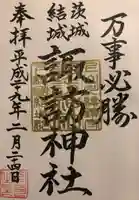 万事必勝
茨城
結城
諏訪神社
奉拝
平成二十九年二月二十四日